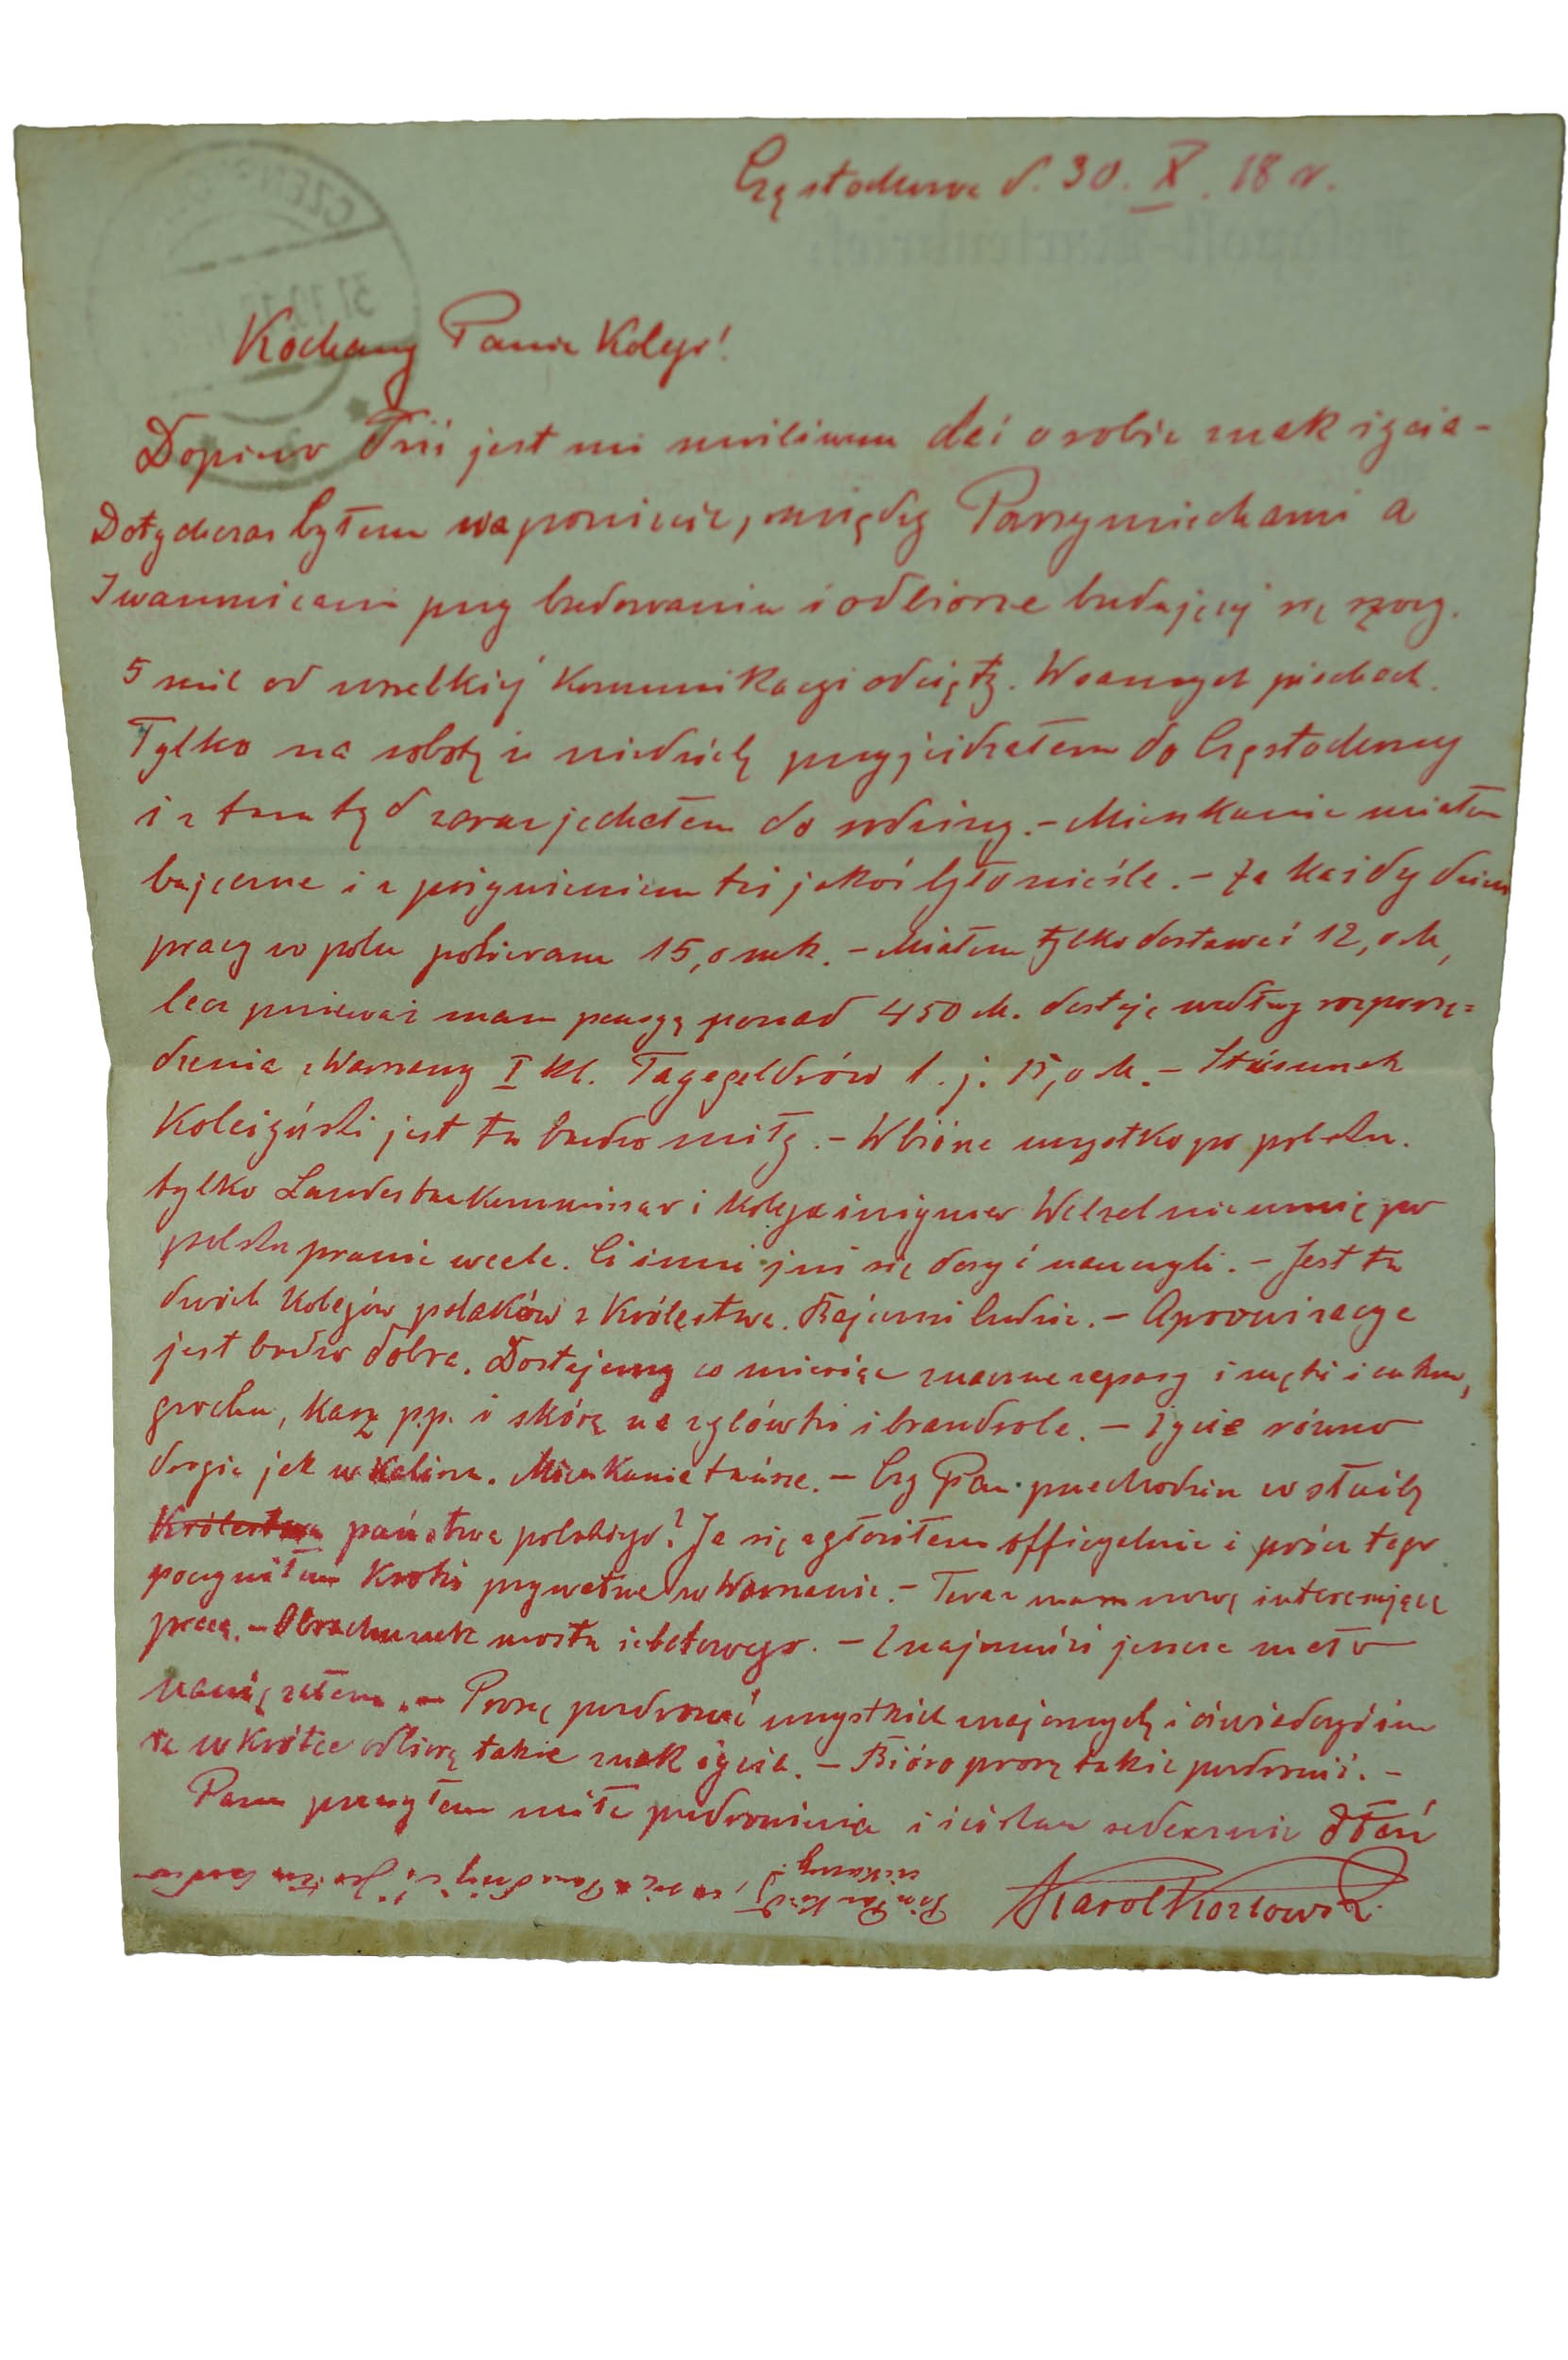 Częstochowa d. 30. X. 18 r.
Kochany Panie Kolego!
Dopiero dziś jest mi możliwem dać o sobie znak życia -
Dotychczas byłem na powiecie, między Parzymiechami a
Iwanowicami przy budowaniu i odbiorze budującej się szosy.
5 mil od wszelkiej komunikacyi odcięty. W samych piachach.
Tylko na sobotę i niedzielę przyjeżdzałem do Częstochowy
i z tamtąd zaraz jechałem do rodziny. - Mieszkanie miałem
bajeczne i z pożywieniem też jakoś było nieźle. - Za każdy dzień
pracy w polu pobieram 15,0 mk. - Miałem tylko dostawać 12,0 M,
lecz ponieważ mam pensyę ponad 450 M. dostaję według rozporzą=
dzenia z Warszawy I kl. Tagegeldrów t. j. 15,0 M. - Stósunek
koleżeński jest tu bardzo miły. - W biórze wszystko po polsku.
tylko Landesbaukommissar i kolega inżynier Welzel nie umie po
polsku prawie wcale. Ci inni już się dosyć nauczyli. - Jest tu
dwóch kolegów polaków z Królestwa. Bajeczni ludzie. - Aprowizacya
jest bardzo dobra. Dostajemy co miesiąc znaczne zapasy i mąki i cukru,
grochu, kasz p.p. i skórę na zelówki i brandzole. - Życie równo
drogie jak w Kaliszu. Mieszkanie tańsze. - Czy Pan przechodzi w służbę
Królestwa państwa polskiego? Ja się zgłosiłem officyelnie i prócz tego
poczyniłem kroki prywatne w Warszawie. - Teraz mam nową interesującą
pracę. - Obrachunek mostu żelbetowego. - Znajomości jeszcze mało
nawiązałem. - Proszę pozdrowić wszystkich znajomych i oświadczyć im
że wkrótce odbiorą także znak życia. - Bióro proszę także pozdrowić. -
Panu przesyłam miłe pozdrowienia i ściskam serdecznie dłoń
Karol Kozłowski